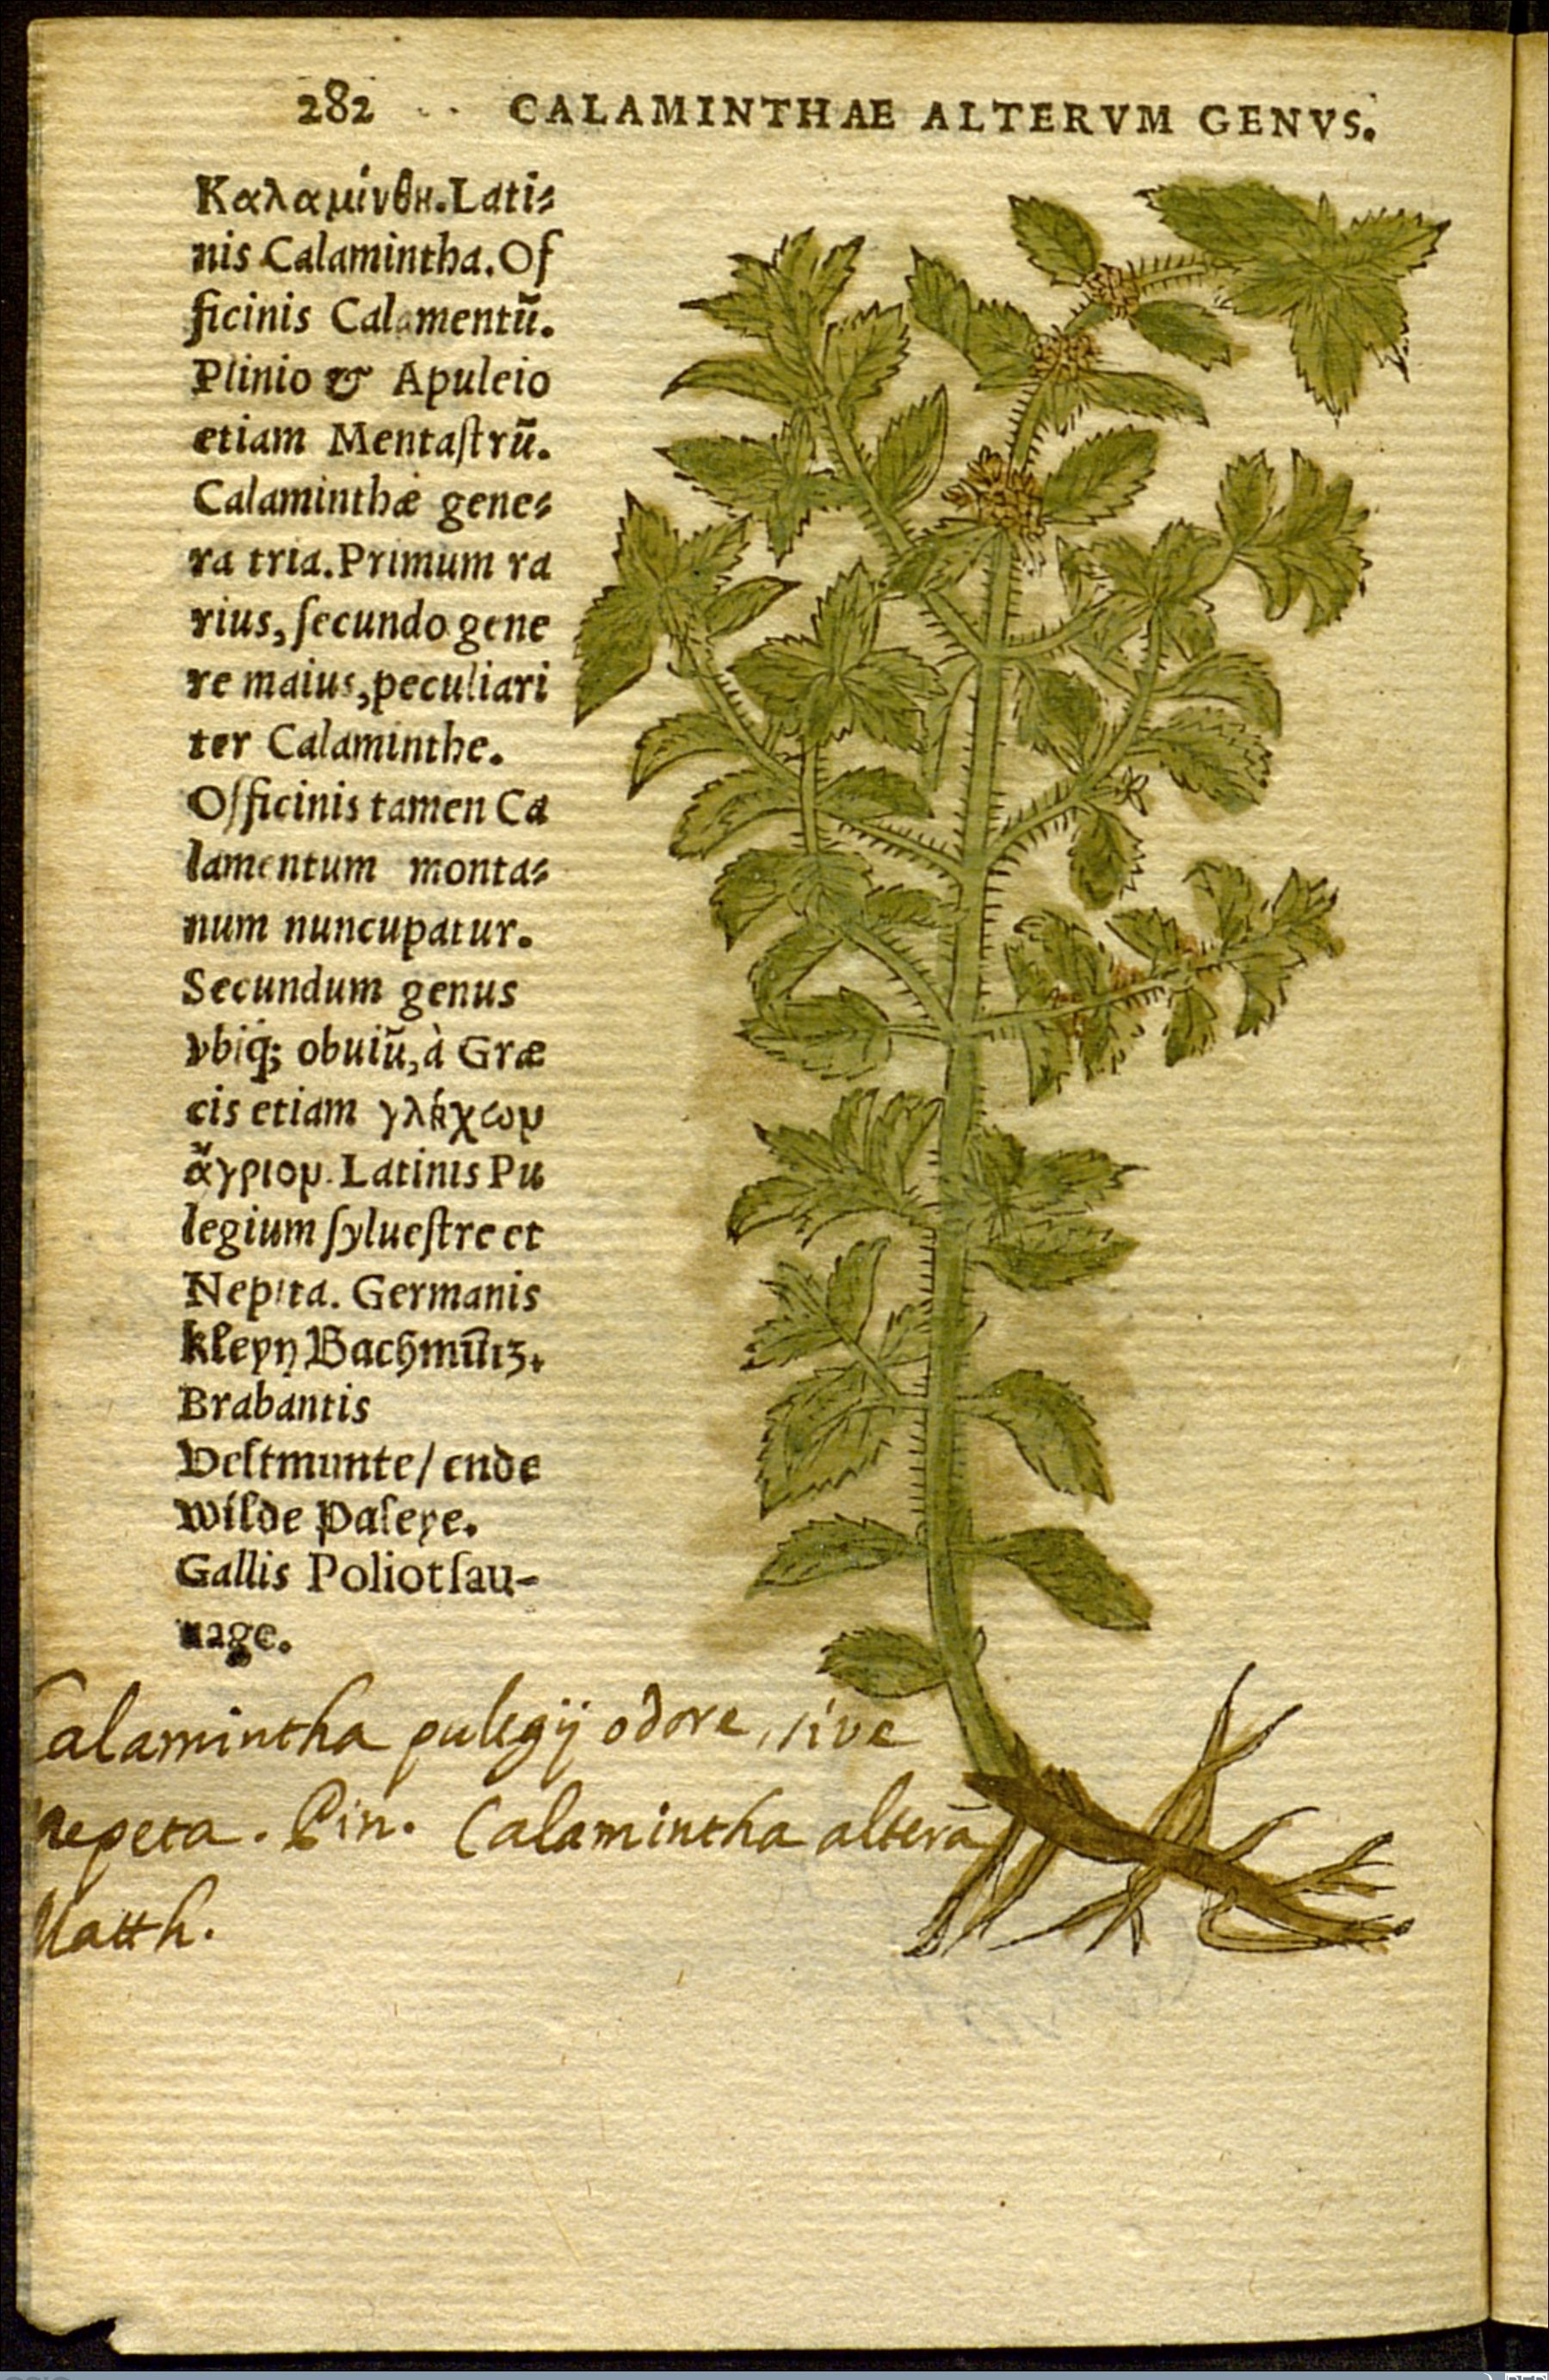 282 CALAMINTHAE ALTERVM GENVS.
Καλαμίνθη. Lati-
nis Calamintha. Of
ficinis Calamentū.
Plinio & Apuleio
etiam Mentaſtrū.
Calaminthæ gene-
ra tria. Primum ra
rius, ſecundo gene
re maius, peculiari
ter Calaminthe.
Officinis tamen Ca
lamentum monta-
num nuncupatur.
Secundum genus
vbiq; obuiū, à Græ
cis etiam γλήχωμ
ἄγριομ. Latinis Pu
legium ſylueſtre et
Nepita. Germanis
kleyn Bachmūtz.
Brabantis
Veltmunte / ende
wilde Paleye.
Gallis Poliot ſau-
uage.
Calamintha pulegij odore, sive
nepeta. Pin. Calamintha altera
Matth.